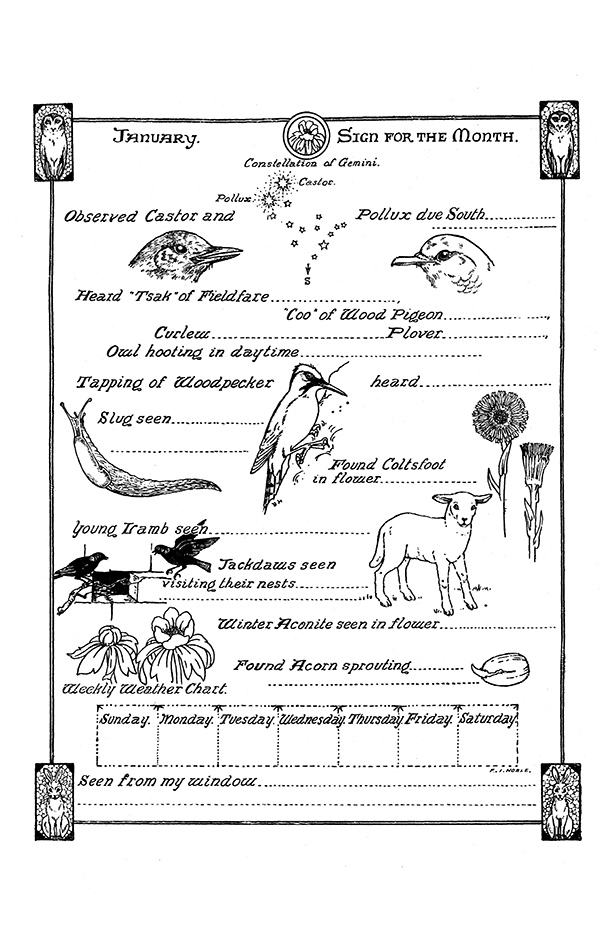 January. Sign for the Month.
Constellation of Gemini.
Castor.
Pollux
Observed Castor and Pollux due South
S
Heard "Tsak" of Fieldfare
"Coo" of Wood Pigeon
Curlew Plover
Owl hooting in daytime
Tapping of Woodpecker heard
Slug seen
Found Coltsfoot
in flower
Young Lamb seen
Jackdaws seen
visiting their nests
Winter Aconite seen in flower
Found Acorn sprouting
Weekly Weather Chart.
Sunday. Monday. Tuesday. Wednesday. Thursday. Friday. Saturday.
F. J. NOBLE.
Seen from my window